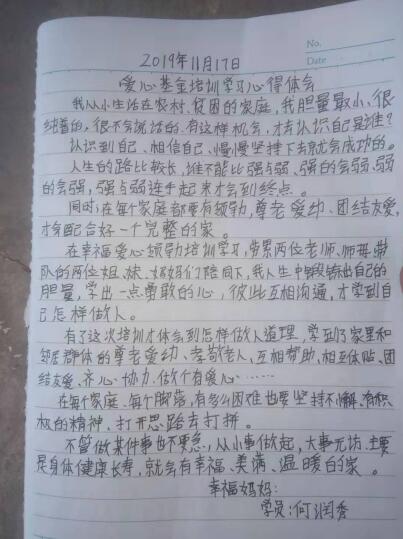 No.
Date
2019年11月17日
爱心基金培训学习心得体会
我从小生活在农村、贫困的家庭，我胆量最小、很
纯普的，很不会说话的。有这样机会，才去认识自己是谁？
认识到自己、相信自己、慢慢坚持下去就会成功的。
人生的路比较长，谁不能比强与弱、强的会弱，弱
的会强，强与弱连手起来才会到终点。
同时，在每个家庭都要有领导，尊老爱幼、团结友爱，
才会配合好一个完整的家。
在幸福爱心领导培训学习，带累两位老师、师母，带
队的两位姐妹、妈妈们陪同下，我人生中锻炼出自己的
胆量，学出一点勇敢的心，彼此互相沟通，才学到自
己怎样做人。
有了这次培训才体会到怎样做人道理，学到了家里和
邻居群体的尊老爱幼、孝敬老人，互相帮助、相互体贴、团
结友爱、齐心协力、做个有爱心……
在每个家庭、每个脚落，有多么困难也要坚持不懈、有积
极的精神，打开思路去打拼。
不管做某件事也不要急，从小事做起，大事无访、主要
是身体健康长寿，就会有幸福、美满、温暖的家。
幸福妈妈：
学员：何润秀